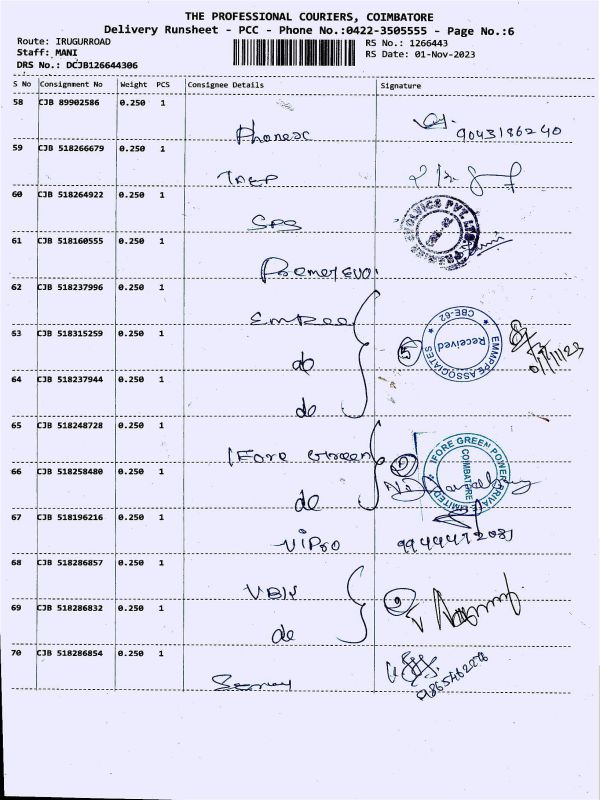 THE PROFESSIONAL COURIERS, COIMBATORE
Delivery Runsheet - PCC - Phone No.:0422-3505555 - Page No.:6
Route: IRUGURROAD
RS No.: 1266443
Staff: MANI
RS Date: 01-Nov-2023
DRS No.: DCJB126644306
S No Consignment No Weight PCS Consignee Details Signature
58 CJB 89902586 0.250 1
9043186240
59 CJB 518266679 0.250 1
60 CJB 518264922 0.250 1
SPS
61 CJB 518160555 0.250 1
62 CJB 518237996 0.250 1
CBE-62
63 CJB 518315259 0.250 1
5
Received
EMMPPE ASSOCIATES
do
64 CJB 518237944 0.250 1
do
65 CJB 518248728 0.250 1
IFore Green
IFORE GREEN POWER PRIVATE LIMITED
COIMBATORE
66 CJB 518258480 0.250 1
do
67 CJB 518196216 0.250 1
ViPro
68 CJB 518286857 0.250 1
69 CJB 518286832 0.250 1
do
70 CJB 518286854 0.250 1